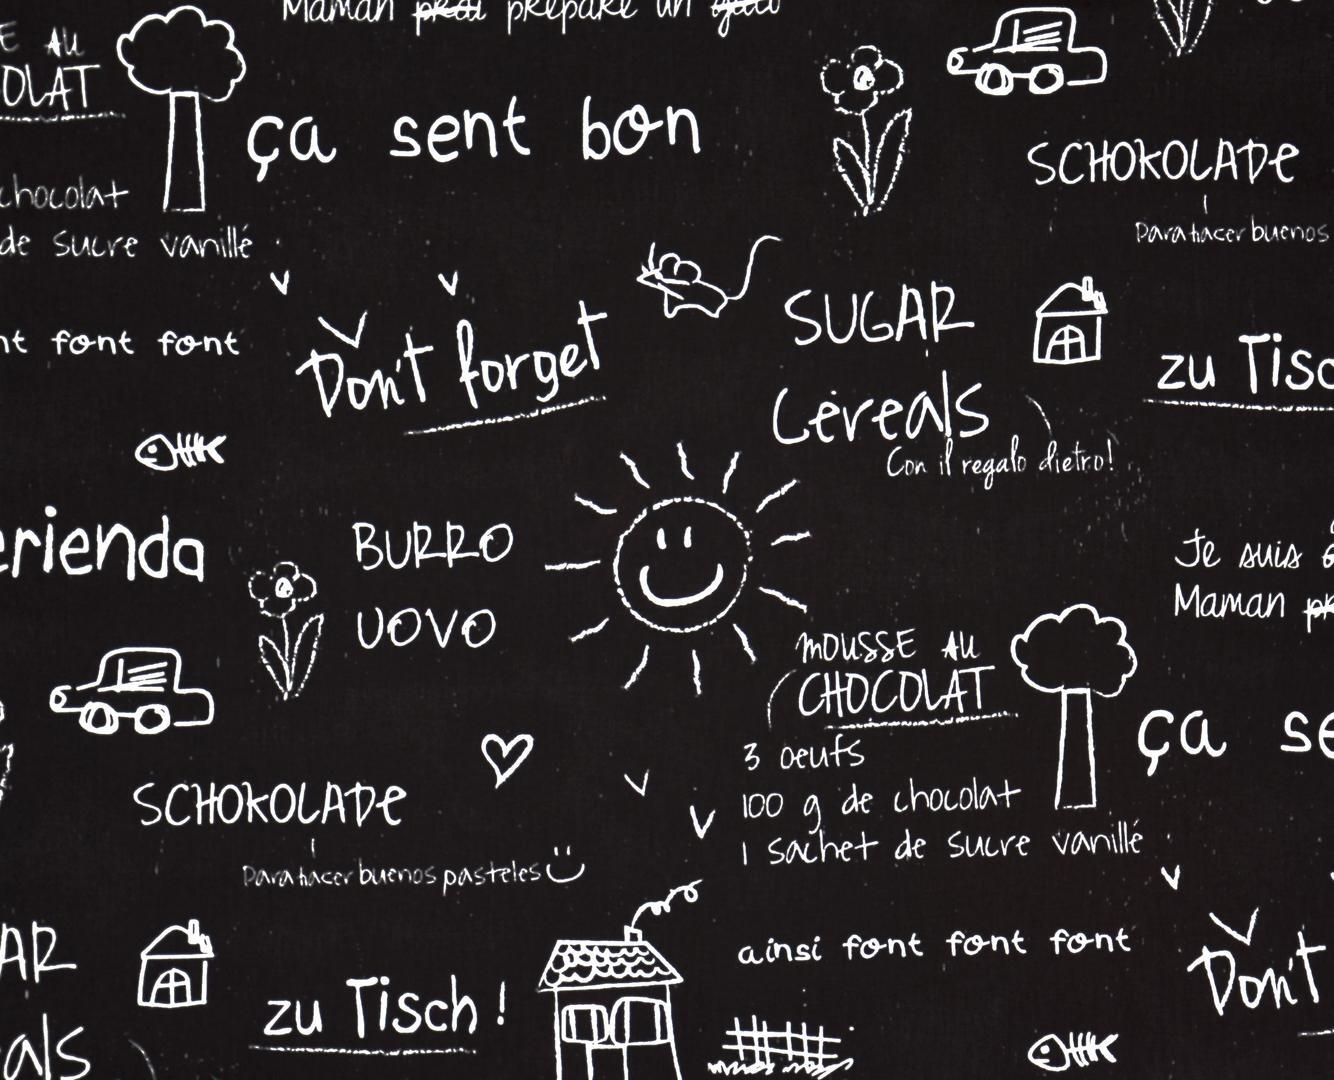 Maman prépare un
E AU
OLAT
ça sent bon
SCHOKOLADE
chocolat
Para hacer buenos
de sucre vanillé
nt font font
Don't forget
SUGAR
zu Tisc
Cereals
Con il regalo dietro!
erienda
BURRO
UOVO
Je suis
Maman
MOUSSE AU
CHOCOLAT
ça se
3 oeufs
100 g de chocolat
1 sachet de sucre vanillé
SCHOKOLADE
Para hacer buenos pasteles
AR
ainsi font font font
Don't
zu Tisch !
als